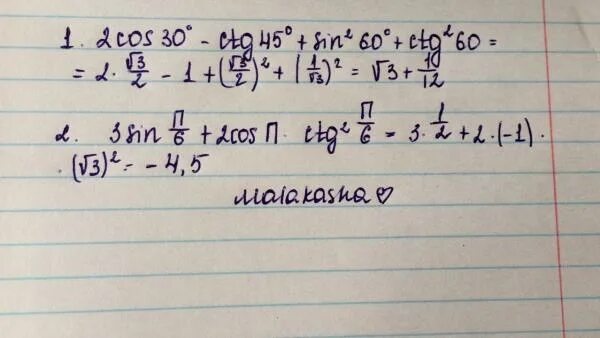 1. 2cos 30° - ctg 45° + sin² 60° + ctg² 60 =
= 2 · √3/2 - 1 + (√3/2)² + (1/√3)² = √3 + 1/12
2. 3sin П/6 + 2cos П · ctg² П/6 = 3 · 1/2 + 2 · (-1) ·
· (√3)² = - 4,5
Malakasha♡